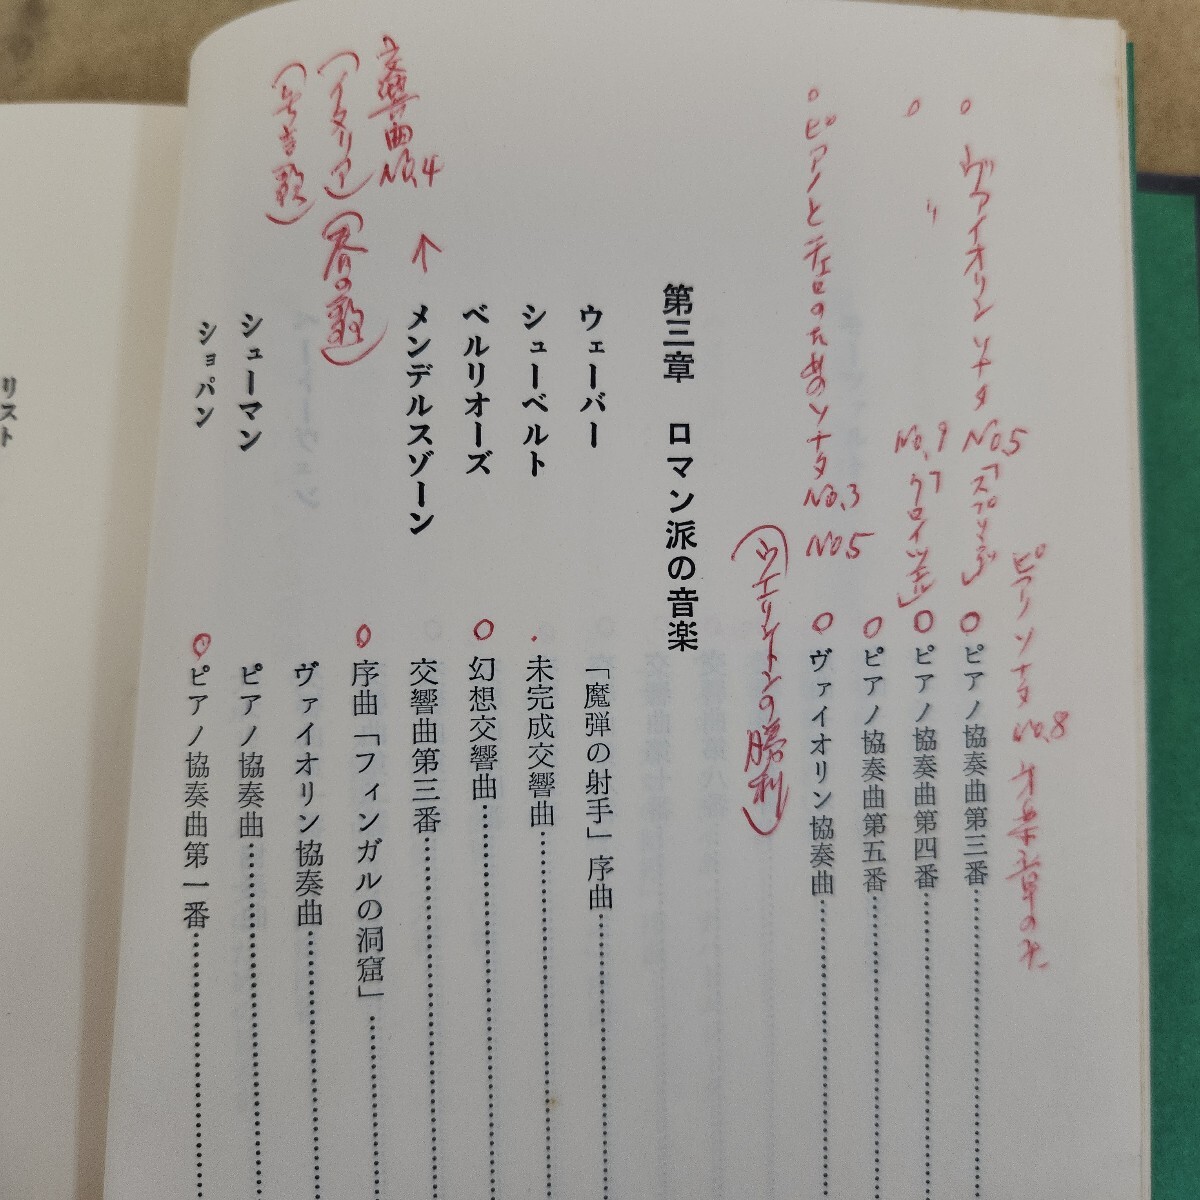 ピアノソナタ No.8
ピアノ協奏曲第三番
ヴァイオリンソナタ No.5 「スプリング」
ピアノ協奏曲第四番
〃 No.9 「クロイツェル」
ピアノ協奏曲第五番
ピアノとチェロのためのソナタ No.3 No5
ヴァイオリン協奏曲
(ウエリントンの勝利)
第三章 ロマン派の音楽
ウェーバー 「魔弾の射手」序曲
シューベルト 未完成交響曲
ベルリオーズ 幻想交響曲
メンデルスゾーン 交響曲第三番
交響曲No.4
(イタリア)
(春の歌)
序曲「フィンガルの洞窟」
ヴァイオリン協奏曲
シューマン ピアノ協奏曲
ショパン ピアノ協奏曲第一番
リスト